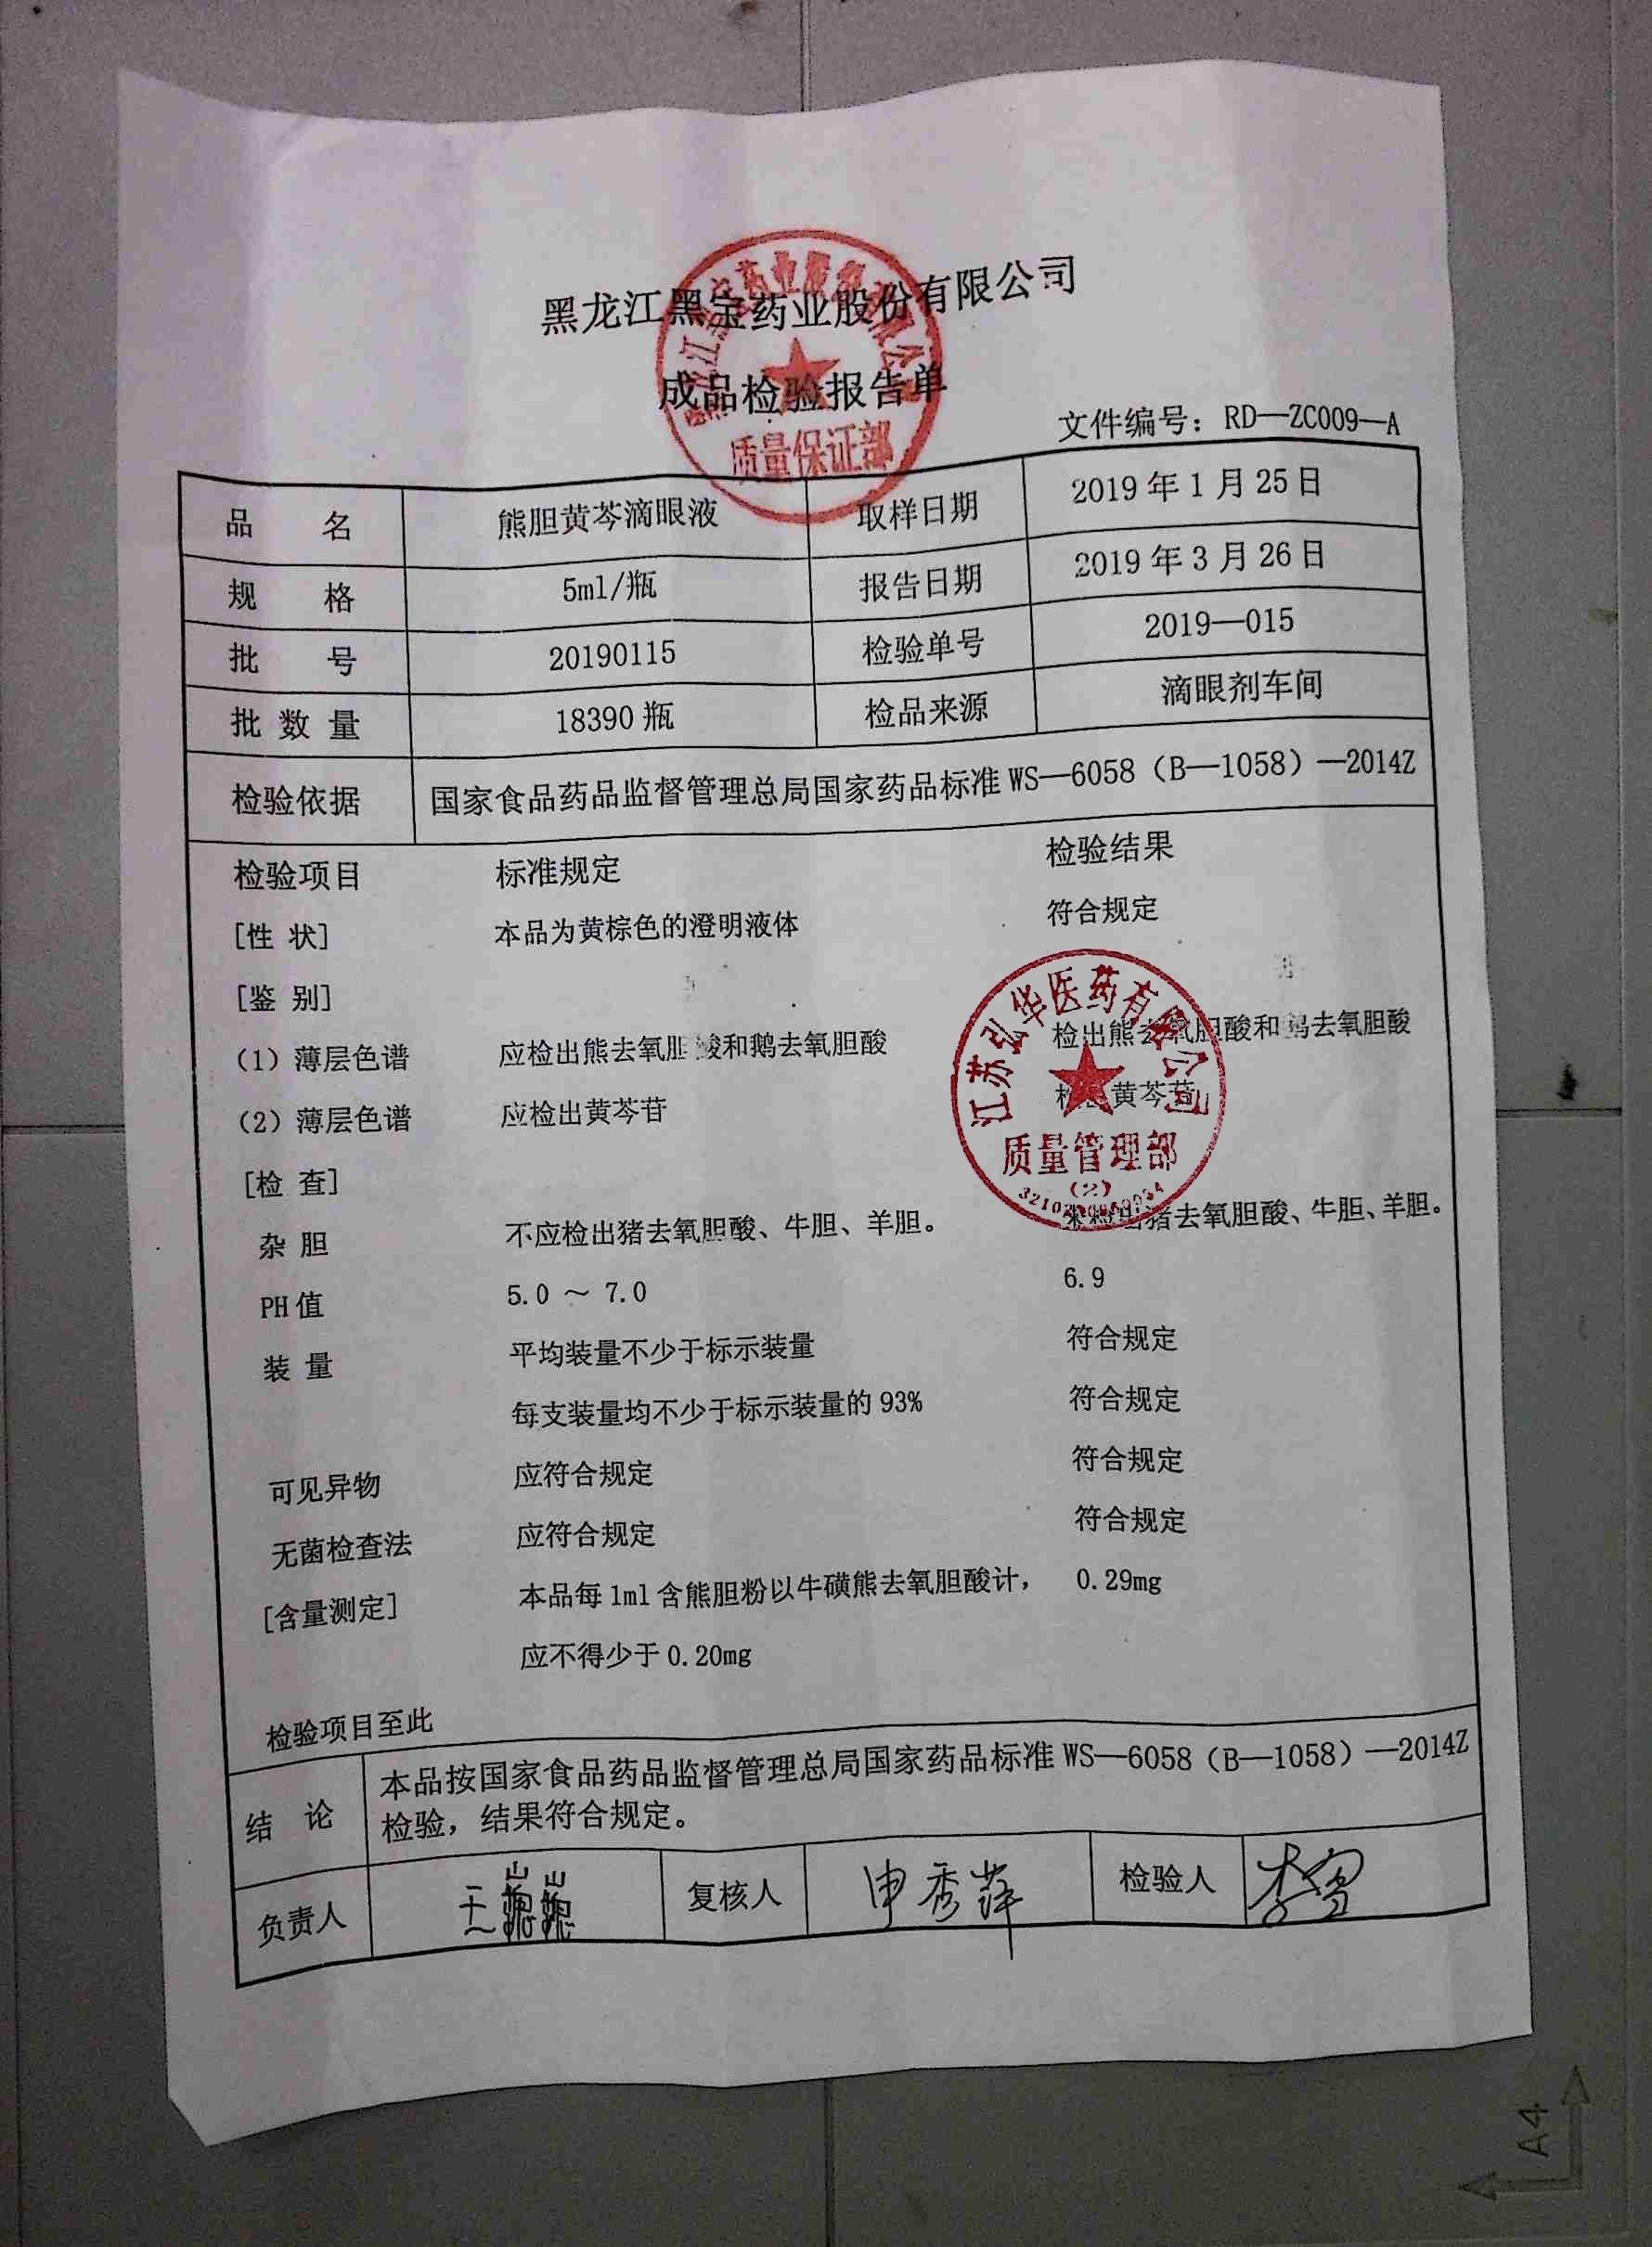 黑龙江黑宝药业股份有限公司
成品检验报告单
质量保证部
文件编号：RD—ZC009—A
品 名 熊胆黄芩滴眼液 取样日期 2019年1月25日
规 格 5ml/瓶 报告日期 2019年3月26日
批 号 20190115 检验单号 2019—015
批数量 18390瓶 检品来源 滴眼剂车间
检验依据 国家食品药品监督管理总局国家药品标准WS—6058（B—1058）—2014Z
检验项目 标准规定 检验结果
[性 状] 本品为黄棕色的澄明液体 符合规定
[鉴 别]
（1）薄层色谱 应检出熊去氧胆酸和鹅去氧胆酸 检出熊去氧胆酸和鹅去氧胆酸
（2）薄层色谱 应检出黄芩苷 检出黄芩苷
江苏弘华医药有限公司
质量管理部
（2）
[检 查]
杂 胆 不应检出猪去氧胆酸、牛胆、羊胆。 未检出猪去氧胆酸、牛胆、羊胆。
PH值 5.0 ～ 7.0 6.9
装 量 平均装量不少于标示装量 符合规定
每支装量均不少于标示装量的93% 符合规定
可见异物 应符合规定 符合规定
无菌检查法 应符合规定 符合规定
[含量测定] 本品每1ml含熊胆粉以牛磺熊去氧胆酸计， 0.29mg
应不得少于0.20mg
检验项目至此
结 论 本品按国家食品药品监督管理总局国家药品标准WS—6058（B—1058）—2014Z
检验，结果符合规定。
负责人 王巍巍 复核人 申秀萍 检验人
A4